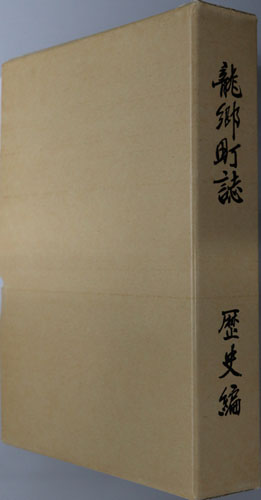 龍郷町誌
歴史編